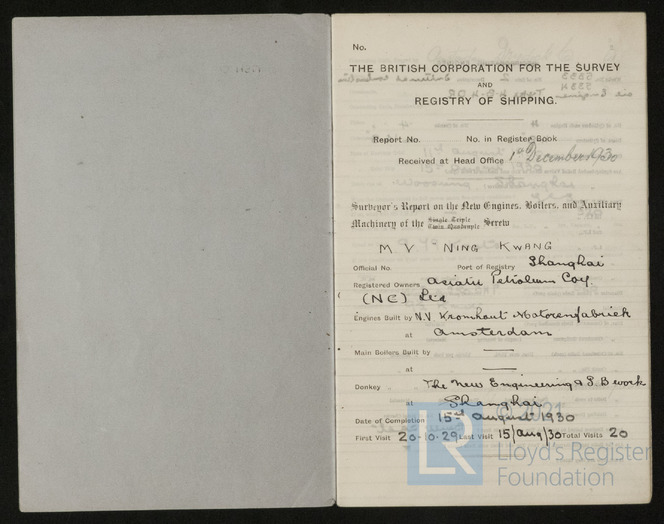 No.
THE BRITISH CORPORATION FOR THE SURVEY
AND
REGISTRY OF SHIPPING.
Report No. No. in Register Book
Received at Head Office 1st December 1930
Surveyor's Report on the New Engines, Boilers, and Auxiliary
Machinery of the Single Triple Twin Quadruple Screw
M V NING KWANG
Official No. Port of Registry Shanghai
Registered Owners Asiatic Petroleum Coy.
(NC) Ltd
Engines Built by N.V Kromhout Motorenfabriek
at Amsterdam
Main Boilers Built by
at
Donkey The New Engineering & S.B work
at Shanghai
Date of Completion 15th August 1930
First Visit 20-10-29 Last Visit 15/Aug/30 Total Visits 20
LR
Lloyd's Register
Foundation